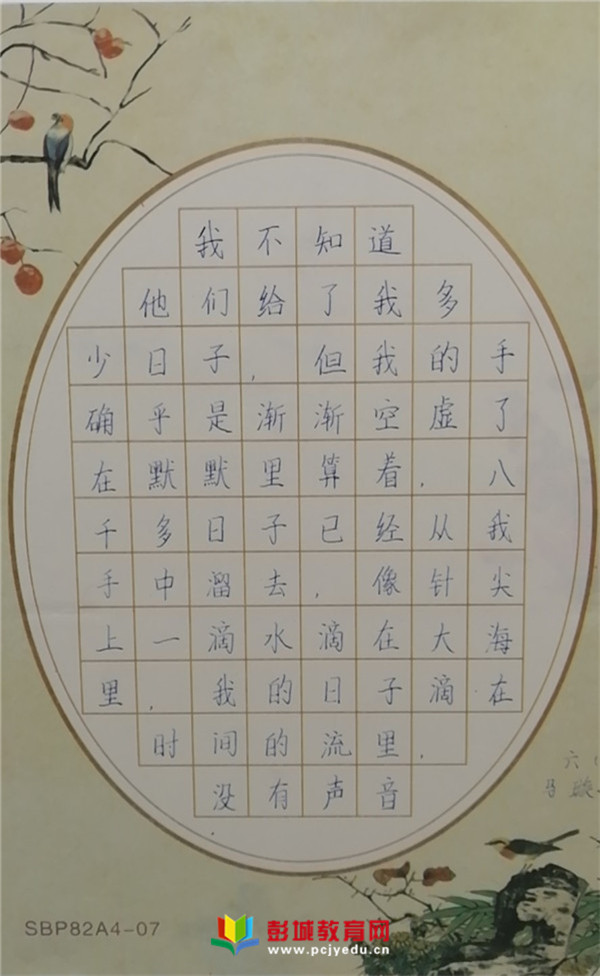 我不知道
他们给了我多
少日子，但我的手
确乎是渐渐空虚了
在默默里算着，八
千多日子已经从我
手中溜去，像针尖
上一滴水滴在大海
里，我的日子滴在
时间的流里，
没有声音
六（
SBP82A4-07
彭城教育网
www.pcjyedu.com